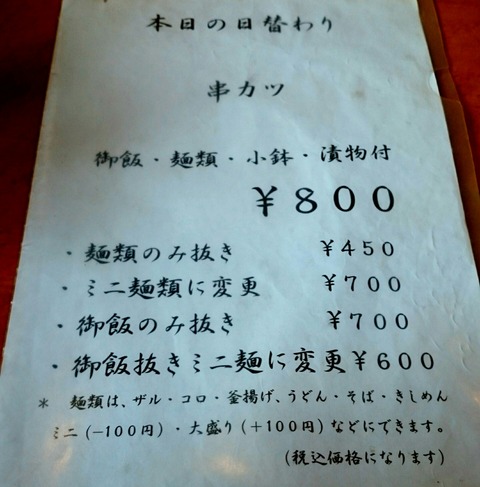 本日の日替わり
串カツ
御飯・麺類・小鉢・漬物付
￥８００
・麺類のみ抜き ￥４５０
・ミニ麺類に変更 ￥７００
・御飯のみ抜き ￥７００
・御飯抜きミニ麺に変更￥６００
＊ 麺類は、ザル・コロ・釜揚げ、うどん・そば・きしめん
ミニ(－100円)・大盛り(＋100円)などにできます。
(税込価格になります)